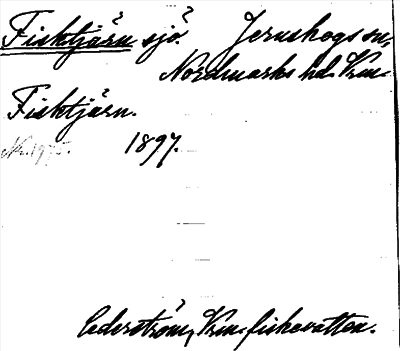 Fisktjärn sjö. Jernskogs sn,
Nordmarks hd. Vrm.
Fisktjärn.
1897.
Cederström, Vrm. fiskevatten.